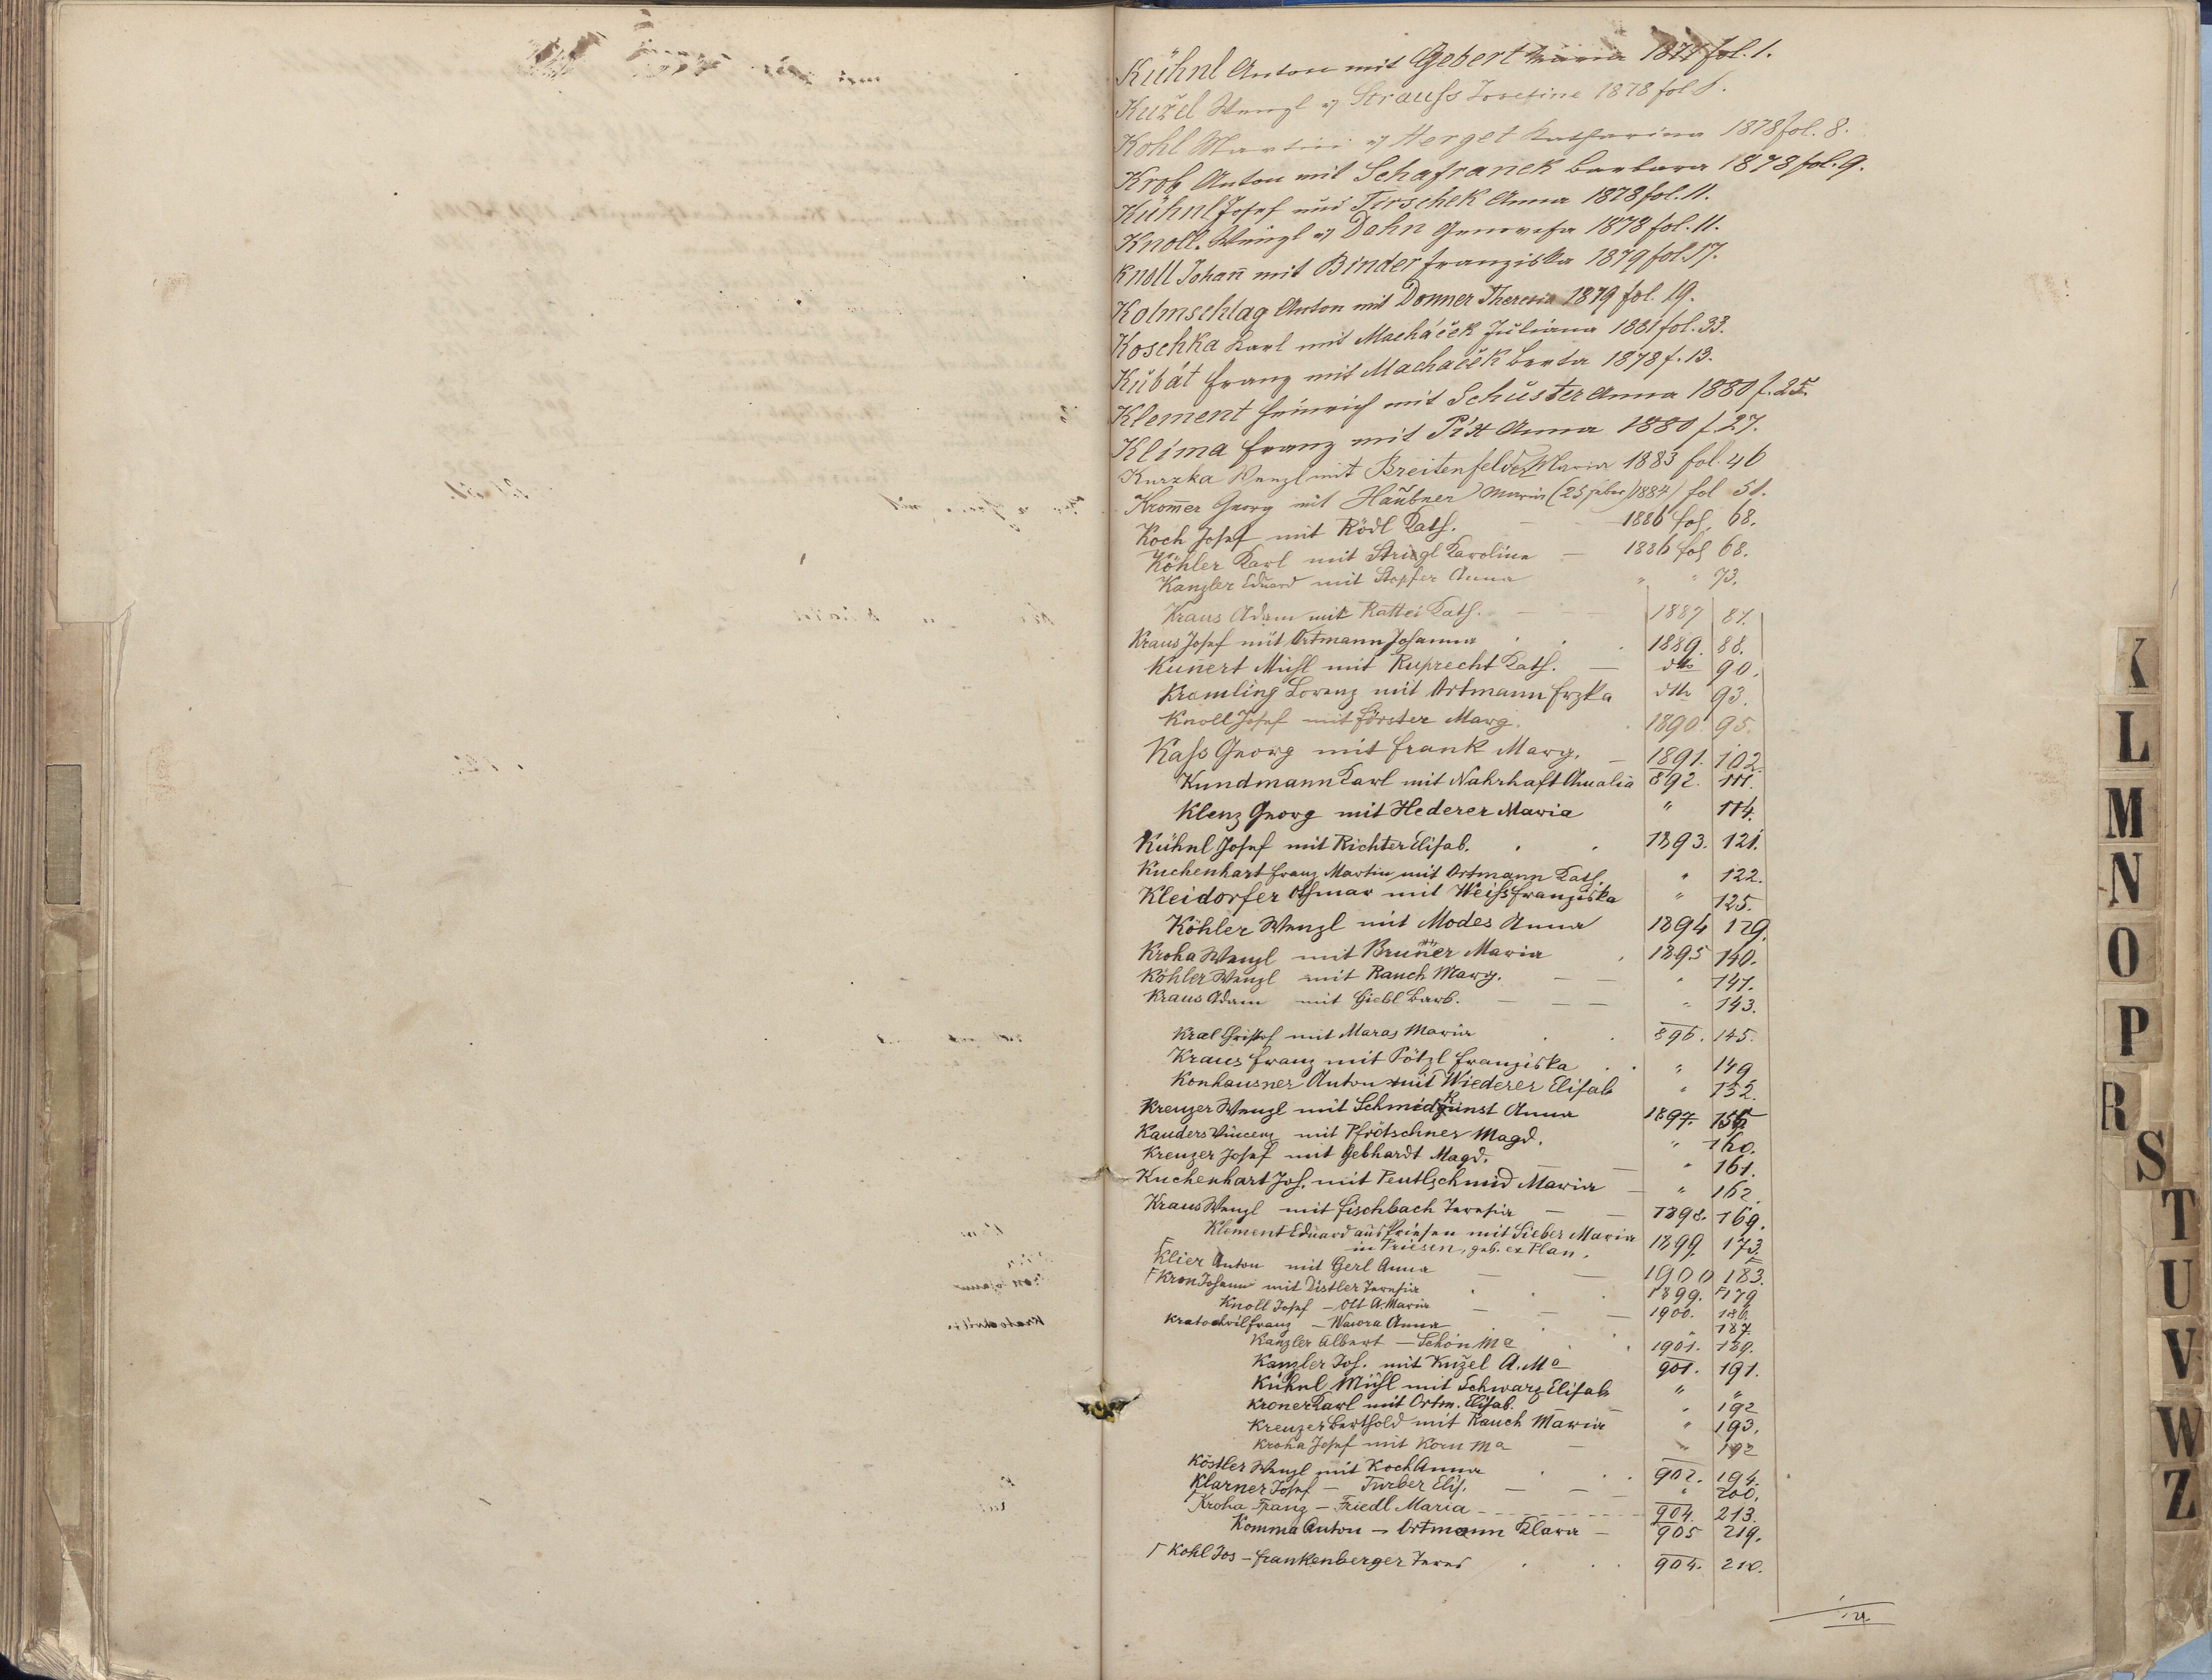 Kühnl Anton mit Gebert Maria 1877 fol. 1.
Kužel Wenzl " Strauſs Josefine 1878 fol
Kohl Martin " Herget Katharina 1878 fol. 8.
Anton mit Schafranek Barbara 1878 fol. 9.
Kühnl Josef mit Tirschek Anna 1878 fol. 11.
Knoll Wenzl " Dahn Genovefa 1878 fol. 11.
Knoll Johan̄ mit Binder Franziska 1879 fol 17.
Kolmschlag Anton mit Donner Theresia 1879 fol. 19.
Koschka Karl mit Macháček Juliana 1881 fol. 33.
Kubát Franz mit Machaček Berta 1878 f. 13.
Klement Heinrich mit Schuster Anna 1880 f. 25.
Klima Franz mit Anna 1880 f. 27.
Kurzka Wenzl mit Breitenfelder Maria 1883 fol. 46
Krom̄er Georg mit Haubner Maria (25 feber 1884) fol 51.
Koch Josef mit Rödl Kath. — 1886 fol. 68.
Köhler Karl mit Striegl Karolina — 1886 fol 68.
Kanzler Eduard mit Stopfer Anna " " 73.
Kraus Adam mit Rattei Kath. — 1887 87.
Kraus Josef mit Ortmann Johanna . . 1889. 88.
Kunert Michl mit Ruprecht Kath. — dtto 90.
Kramling Lorenz mit Ortmann Frzka dtto 93.
Knoll Josef mit Förster Marg. . 1890 95.
Kaſs Georg mit Frank Marg. — 1891. 102.
Kundmann Karl mit Nahrhaft Amalia 892. 111.
Klenz Georg mit Hederer Maria " 114.
Kühnl Josef mit Richter Elisab. . . 1893. 121.
Kuchenhart Franz Martin mit Ortmann Kath. " 122.
Kleidorfer Othmar mit Weiſs Franziska " 125.
Köhler Wenzl mit Modes Anna 1894 129.
Kroha Wenzl mit Brunner Maria . 1895 140.
Köhler Wenzl mit Rauch Marg. — — " 141.
Kraus Adam mit Giebl Barb. — — — " 143.
Kral Christof mit Maras Maria . . 896. 145.
Kraus Franz mit Pötzl Franziska . . " 149
Konhausner Anton mit Wiederer Elisab " 152.
Kreuzer Wenzl mit Schmidkunst Anna 1897. 156
Kauders Vincenz mit Pfrötschner Magd. " 160.
Kreuzer Josef mit Gebhardt Magd. — — " 161.
Kuchenhart Jos. mit Peutlschmid Maria — " 162.
Kraus Wenzl mit Fischbach Teresia — — 1898. 169.
Klement Eduard aus Priesen mit Sieber Maria 1899. 173.
in Priesen, geb. ex Plan.
Klier Anton mit Gerl Anna — — 1900 183.
Kron Johann mit Distler Teresia . . . 1899. 179
Knoll Josef — Ott A. Maria — — — 1900. 186.
Kratochvil Franz — Wawra Anna . . " 187.
Kanzler Albert — Schön Ma . . 1901. 189.
Kanzler Jos. mit Kužel A. Ma 901. 191.
Kühnl Michl mit Schwarz Elisab " "
Kroner Karl mit Ortm. Elisab. — — " 192
Kreuzer Berthold mit Rauch Maria " 193.
Kroha Josef mit Korn Ma — " 192
Köstler Wenzl mit Koch Anna . . . 902. 194.
Klarner Josef — Turber Elis. — — — " 200.
Kroha Franz — Friedl Maria - - - - 904. 213.
Komma Anton — Ortmann Klara — 905 219.
Kohl Jos — Frankenberger Teres . . . 904. 218.
K
L
M
N
O
P
R
S
T
U
V
W
Z